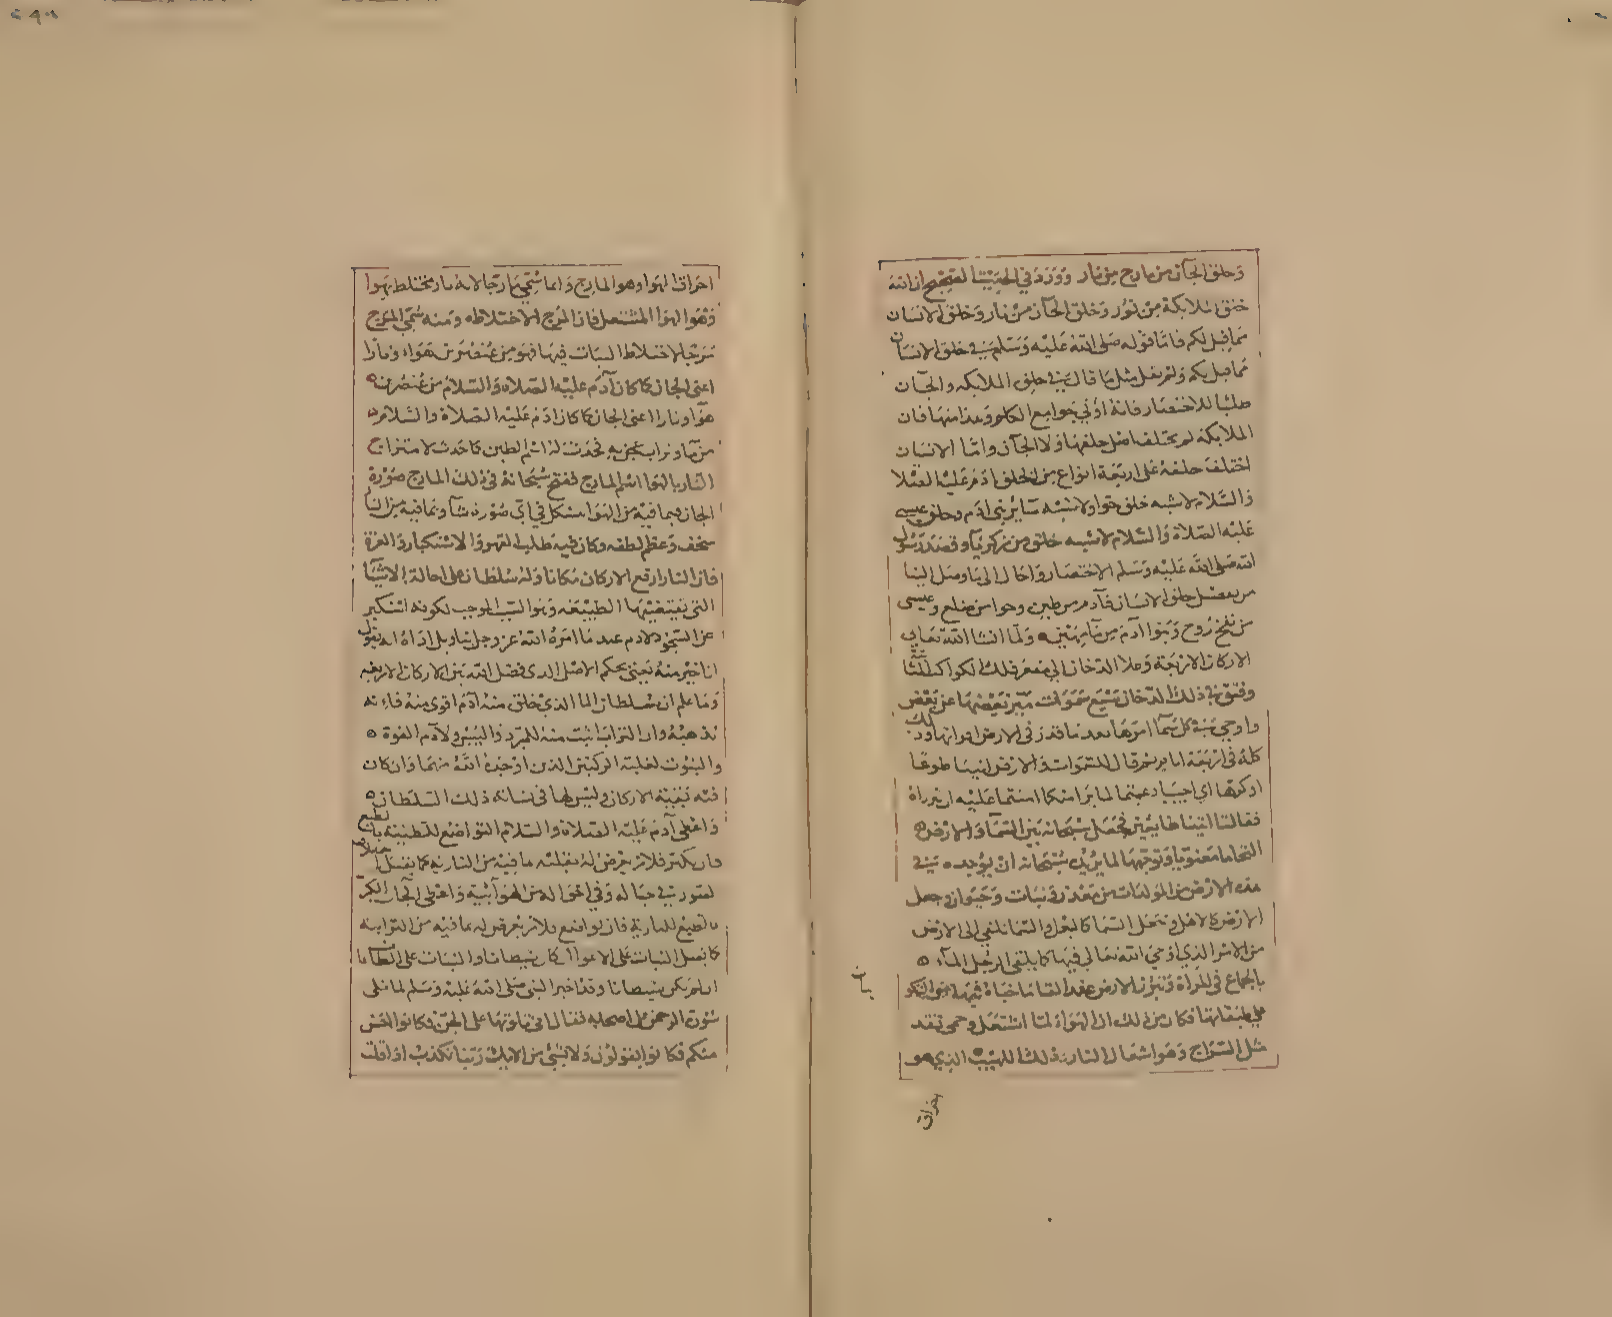 وخلق الجآن من مارج من نار وورد في الحديث الصحيح ان الله
خلق الملايكة من نور وخلق الجآن من نار وخلق الانسان
مما قيل لكم فاما قوله صلى الله عليه وسلم في خلق الانسان
مما قيل لكم ولم يقل مثل ما قال في خلق الملايكه والجآن
طلبا للاختصار فانه اوتي جوامع الكلم وهذا منها فان
الملايكة لم يختلف اصل خلقها ولا الجآن واما الانسان
اختلف خلقه على اربعة انواع من الخلق ادم عليه الصلاة
والسلام لا يشبه خلق حوا ولا يشبه سائر بني ادم وخلق عيسى
عليه الصلاة والسلام لا يشبه خلق من ذكرنا وقصد رسول
الله صلى الله عليه وسلم الاختصار واحال الى ما وصل الينا
من تفصيل خلق الانسان فآدم من طين وحوا من ضلع وعيسى
من نفخ روح وبنوا آدم من مآء مهين ولما انشا الله تعالى
الاركان الاربعة وعلا الدخان الى مقعر فلك الكواكب الثابتة
وفتق في ذلك الدخان سبع سموات ميز بعضها عن بعض
واوحي في كل سما امرها بعد ما قدر في الارض اقواتها وذلك
كله في اربعة ايام ثم قال للسموات والارض ائتيا طوعا
او كرها اي اجيبا اذ دعيتما لما يراد منكما امنتما عليه ان تبرزاه
فقالتا اتينا طايعين فجعل سبحانه بين السمآء والارض
التحاما معنويا وتوجها لما يريد سبحانه ان يوجده في
هذه الارض من المولدات من معدن ونبات وحيوان وجعل
الارض كالاهل وجعل السما كالبعل والسما تلقي الى الارض
من الامر الذي اوحي الله تعالى فيها كما يلقي الرجل المآء
بالجماع في المراة وتبرز الارض عند الالقا ما خباه فيها من التكوين
على طبقاتها فكان من ذلك ان الهواء لما اشتعل وحمي تقد
مثل السراج وهو اشتعال النار ذلك اللهيب الذي هو
احراق الهوا وهو المارج وانما سمي مارجا لانه نار مختلط بهوا
وهو الهوا المشتعل فان المرج الاختلاط ومنه سمي المرج
مرجا لاختلاط النبات فيها فهو من عنصرين هواء ونارا
اعني الجان كما كان آدم عليه الصلاة والسلام من عنصرين
هوآء ونارا اعني الجان كما كان ادم عليه الصلاة والسلام
من مآء وتراب عجن به فحدث له اسم الطين كما حدث لامتزاج
النار بالهوا اسم المارج ففتح سبحانه في ذلك المارج صورة
الجان فبما فيه من الهوا يتشكل في اي صورة شآء وبما فيه من النار
سخف وعظم لطفه وكان فيه طلب القهر والاستكبار والعزة
فان النار ارفع الاركان مكانا وله سلطان على احالة الاشيآ
التي تقتضيها الطبيعه وهو السبب الموجب لكونه استكبر
عن السجود لادم عند ما امره الله عز وجل بتاويل اداه ان يقول
انا خير منه يعني بحكم الاصل الذي فضل الله بين الاركان الاربعه
وما علم ان سلطان الما الذي خلق منه آدم اقوى منه فانه
يذهبه وان التراب اثبت منه للبرد واليبس ولآدم القوة
والثبوت لغلبة الركنين الذين اوجده الله منهما وان كان
فيه بقية الاركان وليس لها في نشاته ذلك السلطان
واعطى آدم عليه الصلاة والسلام التواضع للطينية بالطبع
فان تكبر فلامر يعرض له يقبله بما فيه من النارية كما يقبل اختلاف
الصور في خياله وفي احواله من الهوآئية واعطى الجآن الكبر
بالطبع للنارية فان تواضع فلامر يعرض له بما فيه من الترابية
كما يقبل الثبات على الاغوا ان كان شيطانا والثبات على الطاعات
ان لم يكن شيطانا وقد اخبر النبي صلى الله عليه وسلم لما تلى
سورة الرحمن على اصحابه فقال اني تلوتها على الجن فكانوا احسن
منكم فكانوا يقولون ولا بشيء من الايك ربنا نكذب اذا قلت